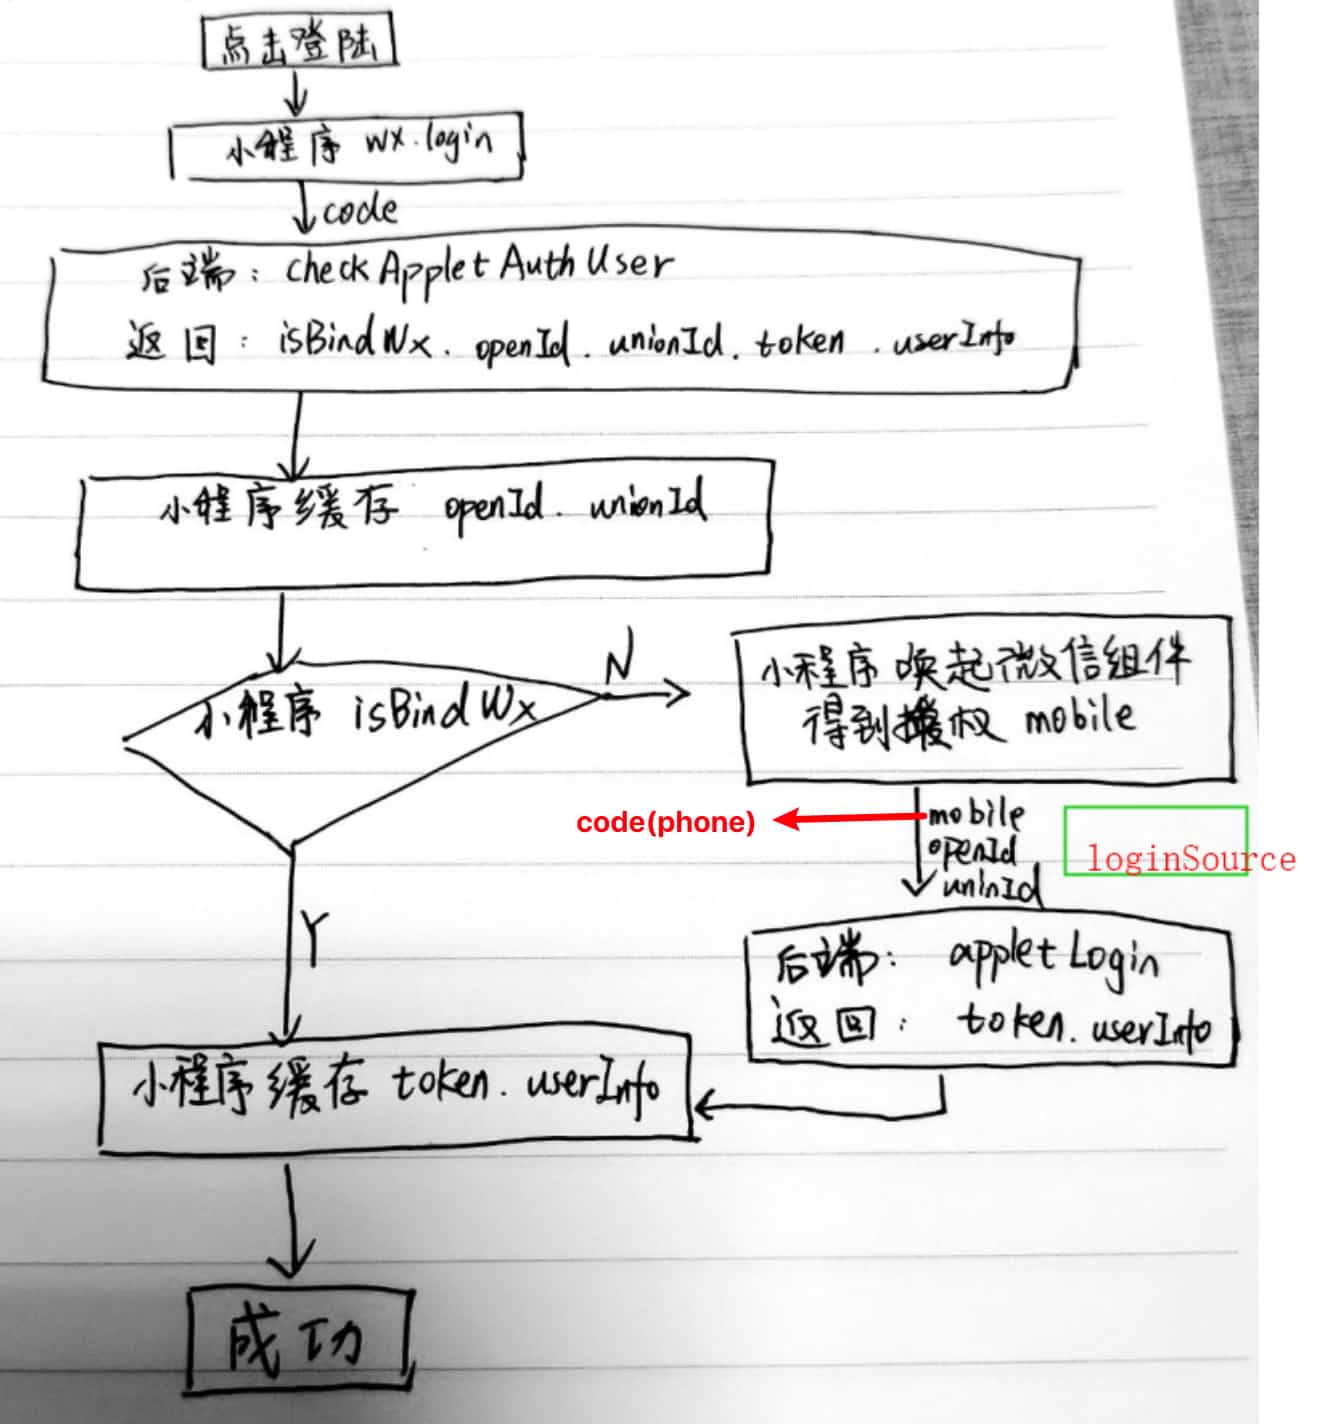 点击登陆
小程序 wx.login
code
后端: checkAppletAuthUser
返回: isBindWx. openId. unionId. token. userInfo
小程序缓存 openId. unionId
小程序 isBindWx
N
小程序唤起微信组件
得到授权 mobile
code(phone)
mobile
openId
uninId
loginSource
Y
后端: appletLogin
返回: token. userInfo
小程序缓存 token. userInfo
成功